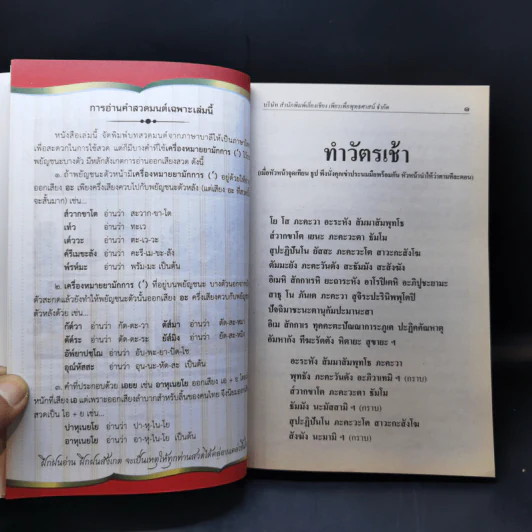 การอ่านคำสวดมนต์เฉพาะเล่มนี้
หนังสือเล่มนี้ จัดพิมพ์บทสวดมนต์จากภาษาบาลีให้เป็นภาษาไทย
เพื่อสะดวกในการใช้สวด แต่ก็มีบางคำที่ใช้เครื่องหมายยามักการ (๎) ไว้บน
พยัญชนะบางตัว มีหลักสังเกตการอ่านออกเสียงสวด ดังนี้
๑. ถ้าพยัญชนะตัวหน้ามีเครื่องหมายยามักการ (๎) อยู่ด้วยให้
ออกเสียง อะ เพียงครึ่งเสียงควบไปกับพยัญชนะตัวหลัง (แต่เสียง อะ
จะสั้นมาก) เช่น...
ส๎วากขาโต อ่านว่า สะวาก-ขา-โต
เท๎ว อ่านว่า ทะเว
เต๎วะ อ่านว่า ตะ-เว-วะ
ค๎รีเมขะลัง อ่านว่า คะรี-เม-ขะ-ลัง
พ๎รหมะ อ่านว่า พรัม-มะ เป็นต้น
๒. เครื่องหมายยามักการ (๎) ที่อยู่บนพยัญชนะ บางตัวนอกจาก
ตัวสะกดแล้วยังทำให้พยัญชนะตัวนั้นออกเสียง อะ ครึ่งเสียงควบกับพยัญชนะ
ตัวหลังด้วย เช่น...
กัต๎วา อ่านว่า กัต-ตะ-วา ตัส๎มา อ่านว่า ตัด-สะ-มา
ตัต๎ระ อ่านว่า ตัด-ตะ-ระ ยัส๎มิง อ่านว่า ยัด-สะ-มิง
อัพ๎ยาปชโฌ อ่านว่า อับ-พะ-ยา-ปัด-โช
อุณ๎หัสสะ อ่านว่า อุน-นะ-หัด-สะ เป็นต้น
๓. คำที่ประกอบด้วย เอยย เช่น อาหุเนยโย ออกเสียง เอ + ย
หนักที่เสียง เอ แต่เพราะออกเสียงลำบากสำหรับลิ้นของคนไทย จึงนิยม
สวดเป็น ไอ + ย เช่น...
ปาหุเนยโย อ่านว่า ปา-หุ-ไน-โย
อาหุเนยโย อ่านว่า อา-หุ-ไน-โย เป็นต้น
ฝึกฝนอ่าน ฝึกฝนสังเกต จะเป็นเหตุให้ทุกท่านสวดได้
บริษัท สำนักพิมพ์เลี่ยงเชียง เพียรเพื่อพุทธศาสน์ จำกัด ๑
ทำวัตรเช้า
(เมื่อหัวหน้าจุดเทียน ธูป พึงนั่งคุกเข่าประนมมือพร้อมกัน หัวหน้านำให้ว่าตามทีละตอน)
โย โส ภะคะวา อะระหัง สัมมาสัมพุทโธ
ส๎วากขาโต เยนะ ภะคะวะตา ธัมโม
สุปะฏิปันโน ยัสสะ ภะคะวะโต สาวะกะสังโฆ
ตัมมะยัง ภะคะวันตัง สะธัมมัง สะสังฆัง
อิเมหิ สักกาเรหิ ยะถาระหัง อาโรปิเตหิ อะภิปูชะยามะ
สาธุ โน ภันเต ภะคะวา สุจิระปะรินิพพุโตปิ
ปัจฉิมาชะนะตานุกัมปะมานะสา
อิเม สักกาเร ทุคคะตะปัณณาการะภูเต ปะฏิคคัณหาตุ
อัมหากัง ทีฆะรัตตัง หิตายะ สุขายะ ฯ
อะระหัง สัมมาสัมพุทโธ ภะคะวา
พุทธัง ภะคะวันตัง อะภิวาเทมิ ฯ (กราบ)
ส๎วากขาโต ภะคะวะตา ธัมโม
ธัมมัง นะมัสสามิ ฯ (กราบ)
สุปะฏิปันโน ภะคะวะโต สาวะกะสังโฆ
สังฆัง นะมามิ ฯ (กราบ)